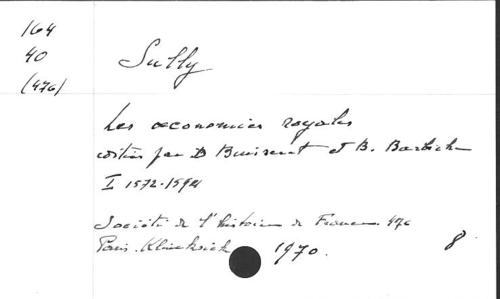 164
40
(476)
Sully
Les œconomies royales
éditées par D Buisseret et B. Barbiche
I 1572-1594
Société de l'histoire de France 476
Paris. Klincksieck 1970.
8